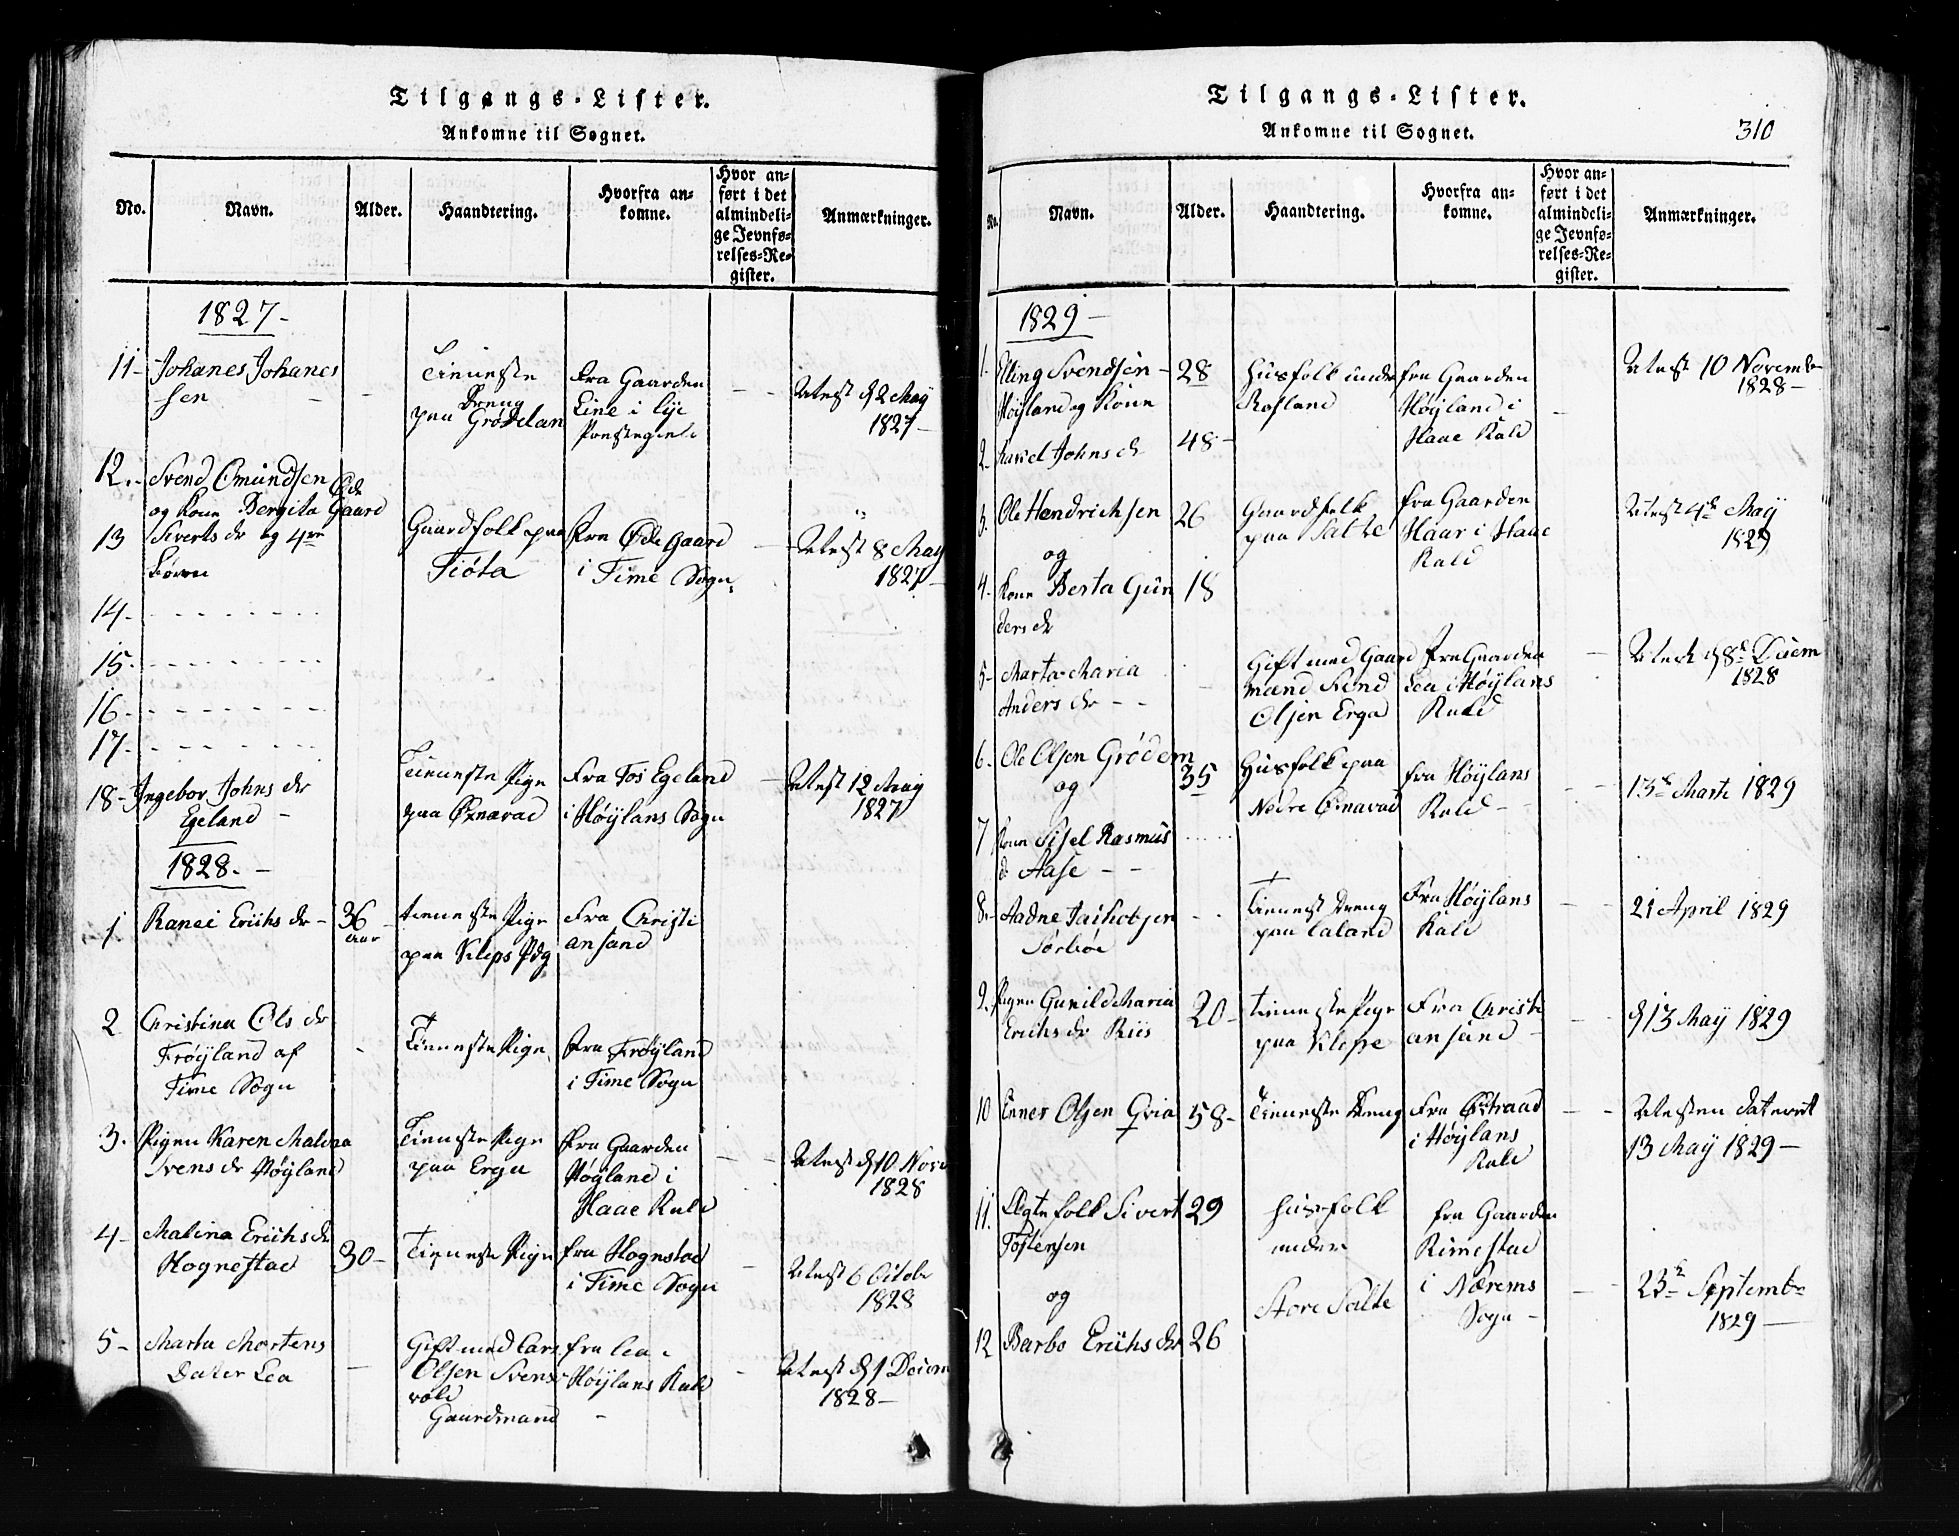 Tilgangs-Lister.
Ankomne til Sognet.
No.
Navn.
Alder.
Haandtering.
Hvorfra an-
komne.
Hvor an-
ført i det
almindeli-
ge Jevnfø-
relses-Re-
gister.
Anmærkninger.
1827-
11- Johanes Johanes
sen -
Tieneste
Dreng
paa Grødelan
Fra Gaarden
Line i Lye
Attest d 2 May
1827-
12.- Svend Omundsen Øde
og Kone Bergita Gaard
13 Siverts dr og 4re
Børn
Gaardfolk paa
Tiøta
Fra Øde Gaard
i Time Sogn.
Attest 8 May
1827-
14-
15-
16-
17-
18- Ingebor Johns dr
Egeland -
Tieneste Pige
paa Øxnavad
Fra Fos Egeland
i Høylans Sogn
Attest 12 May
1827
1828.-
1 Ranei Erichs dr-
36
aar
tieneste Pige
paa Kleps Pdg
Fra Christi
ansand
2 Christina Ols dr
Frøyland af
Time Sogn
Tieneste Pige
Fra Frøyland
i Time Sogn
3. Pigen Karen Malena
Svens dr Høyland
Tieneste Pige
paa Erga
Fra Gaarden
Høyland i
Haae Kald
Attest d 10 Nov
1828
4- Malina Erichs dr
Hognestad
30-
Tieneste Pige
fra Hognestad
i Time Sogn
Attest 6 Octobr
1828
5- Marta Mortens
Dater Lea
Gift med Lars
Olsen Svens
vold
Gaardmand
fra Lea i
Høylans Kald
Attest d 1 Decem
1828-
Tilgangs-Lister.
Ankomne til Sognet.
310
No.
Navn.
Alder.
Haandtering.
Hvorfra an-
komne.
Hvor an-
ført i det
almindeli-
ge Jevnfø-
relses-Re-
gister.
Anmærkninger.
1829-
1. Elling Svendsen-
Høyland og Kone
28
Husfolk under
Rosland
fra Gaarden
Høyland i
Haae Kald
Attest 10 Novembr
1828-
2- Johns dr
48-
3. Ole Hendrichsen
og
26
Gaardfolk
paa Salte
fra Gaarden
Haar i Haae
Kald
Attest 4de May
1829
4- Kone Berta Gun
ders dr
18
5- Marta Maria
Anders dr - -
Gift med Gaard
mand Svend
Olsen Erga
Fra Gaarden
Lea i Høylans
Kald
Attest d 8de Decem
1828
6- Ole Olsen Grødem
og
35
Husfolk paa
Nedre Øxnavad
fra Høylans
Kald-
13de Marti 1829
7 Kone Sisel Rasmus
dr Aase - -
8- Aadne Jachobsen
Sørbøe
Tienest Dreng
paa Laland
Fra Høylans
Kald
21 April 1829
9. Pigen Gunild Maria
Erichs dr Riis
20-
Tieneste Pige
paa Kleppe
Fra Christi
ansand -
d 13 May 1829
10 Enner Olsen Qvia
58-
Tieneste Dreng
Fra Østraad
i Høylans
Kald
Attesten dateret
13 May 1829-
11. Ægtefolk Sivert
Tostensen
og
29
Husfolk
under
Store Salte
fra Gaarden
Rimestad
i Nærems
Sogn-
23de Septembr
1829-
12 Barbo Erichs dr
26